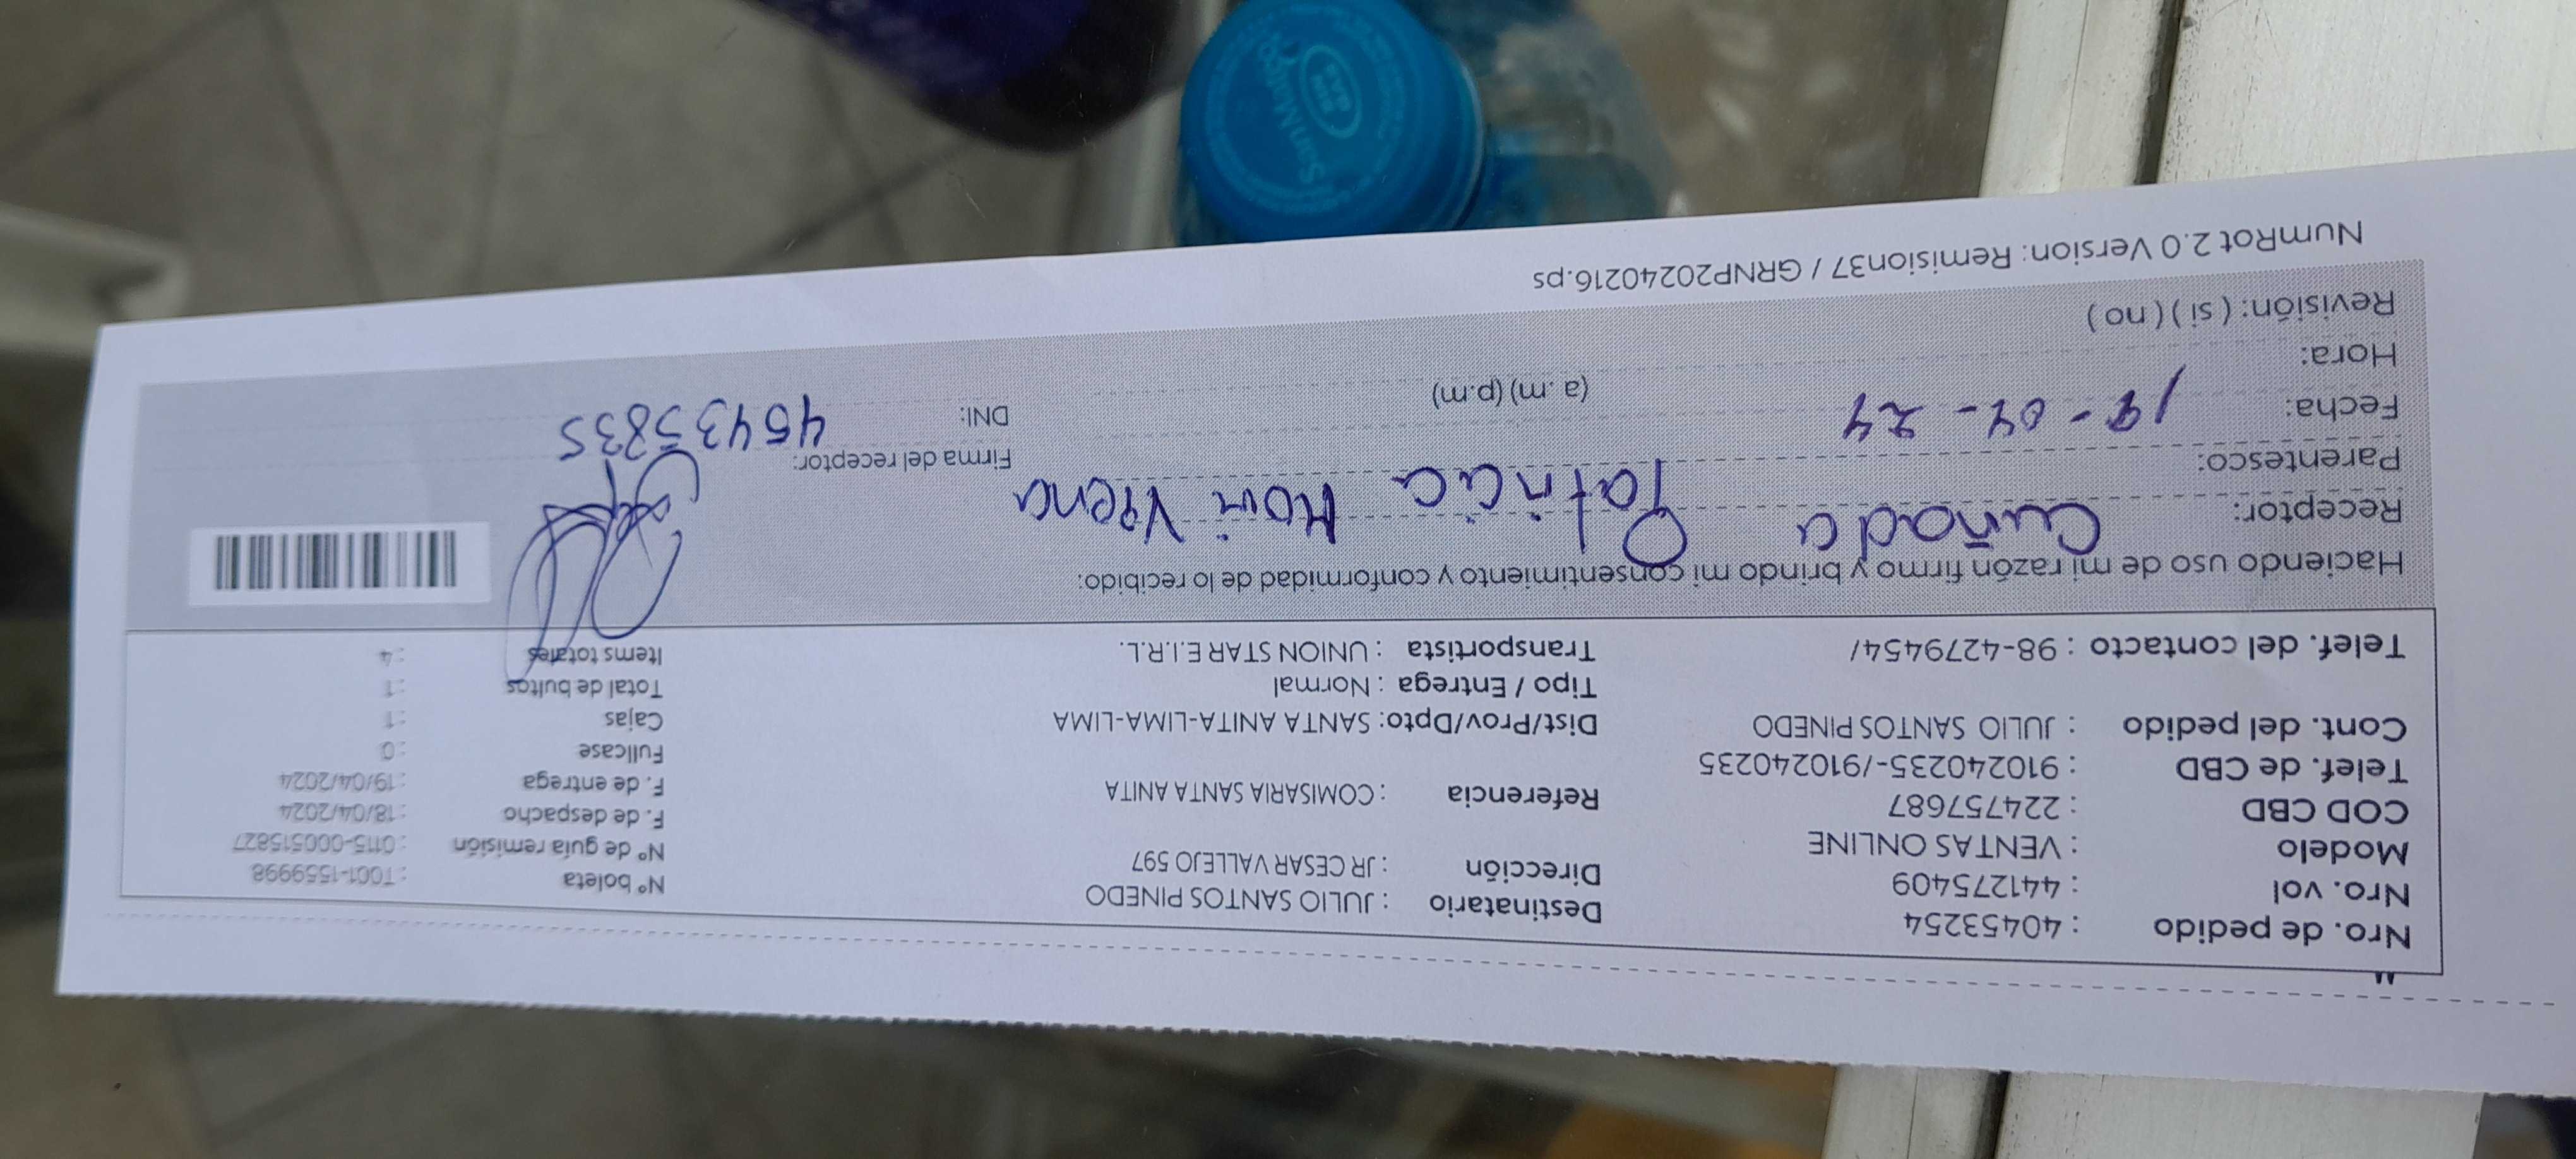 Nro. de pedido : 40453254
Nro. vol : 441275409
Modelo : VENTAS ONLINE
COD CBD : 224757687
Telef. de CBD : 910240235-/910240235
Cont. del pedido : JULIO SANTOS PINEDO
Telef. del contacto : 98-4279454/
Destinatario : JULIO SANTOS PINEDO
Dirección : JR CESAR VALLEJO 597
Referencia : COMISARIA SANTA ANITA
Dist/Prov/Dpto: SANTA ANITA-LIMA-LIMA
Tipo / Entrega : Normal
Transportista : UNION STAR E.I.R.L.
Nº boleta : T001-1559998
Nº de guía remisión : 0115-000515827
F. de despacho : 18/04/2024
F. de entrega : 19/04/2024
Fullcase : 0
Cajas : 1
Total de bultos : 1
Items totales : 4
Haciendo uso de mi razón firmo y brindo mi consentimiento y conformidad de lo recibido:
Receptor: Cuñada Patricia
Parentesco:
Fecha: 19-04-24
Hora: (a.m) (p.m)
Revisión: ( si ) ( no )
Firma del receptor:
DNI: 45435835
NumRot 2.0 Version: Remision37 / GRNP20240216.ps
San Mateo
SIN GAS